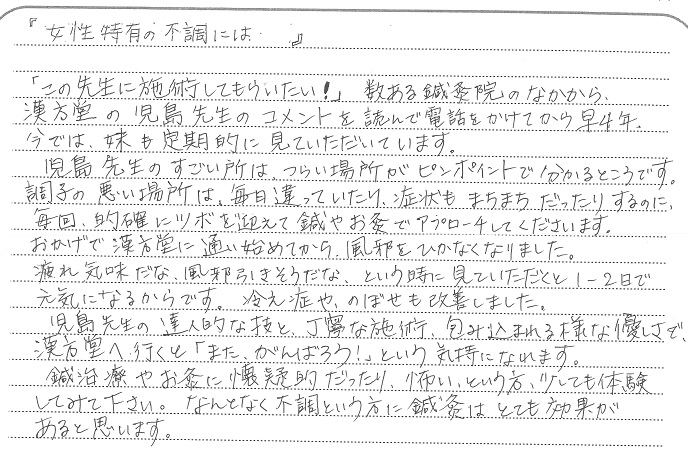 『女性特有の不調には… 』
「この先生に施術してもらいたい！」 数ある鍼灸院のなかから、
漢方堂の児島先生のコメントを読んで電話をかけてから早4年。
今では、妹も定期的に見ていただいています。
児島先生のすごい所は、つらい場所がピンポイントで分かるところです。
調子の悪い場所は、毎日違っていたり、症状もまちまちだったりするのに、
毎回、的確にツボを迎えて鍼やお灸でアプローチしてくださいます。
おかげで漢方堂に通い始めてから、風邪をひかなくなりました。
疲れ気味だな、風邪引きそうだな、という時に見ていただくと1-2日で
元気になるからです。 冷え症や、のぼせも改善しました。
児島先生の達人的な技と、丁寧な施術、包み込まれる様な優しさで、
漢方堂へ行くと「また、がんばろう！」という気持になれます。
鍼治療やお灸に懐疑的だったり、怖い、という方、少しでも体験
してみて下さい。 なんとなく不調という方に鍼灸はとても効果が
あると思います。